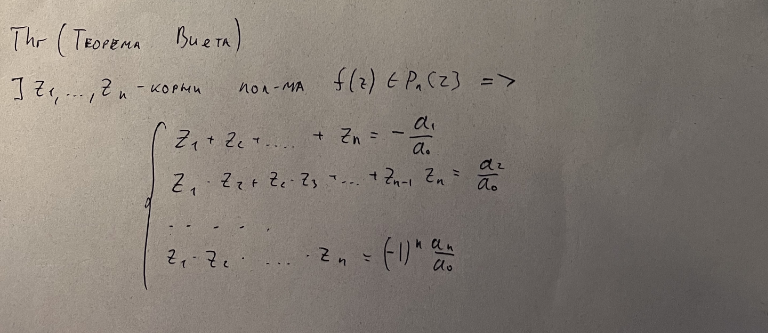 Thr (Теорема Виета)
] z₁, ..., zₙ - корни пол-ма f(z) ∈ Pₙ(z) =>
z₁ + z₂ + .... + zₙ = - a₁/a₀
z₁ · z₂ + z₂ · z₃ + ... + zₙ₋₁ zₙ = a₂/a₀
. . . . .
z₁ · z₂ · .... · zₙ = (-1)ⁿ aₙ/a₀